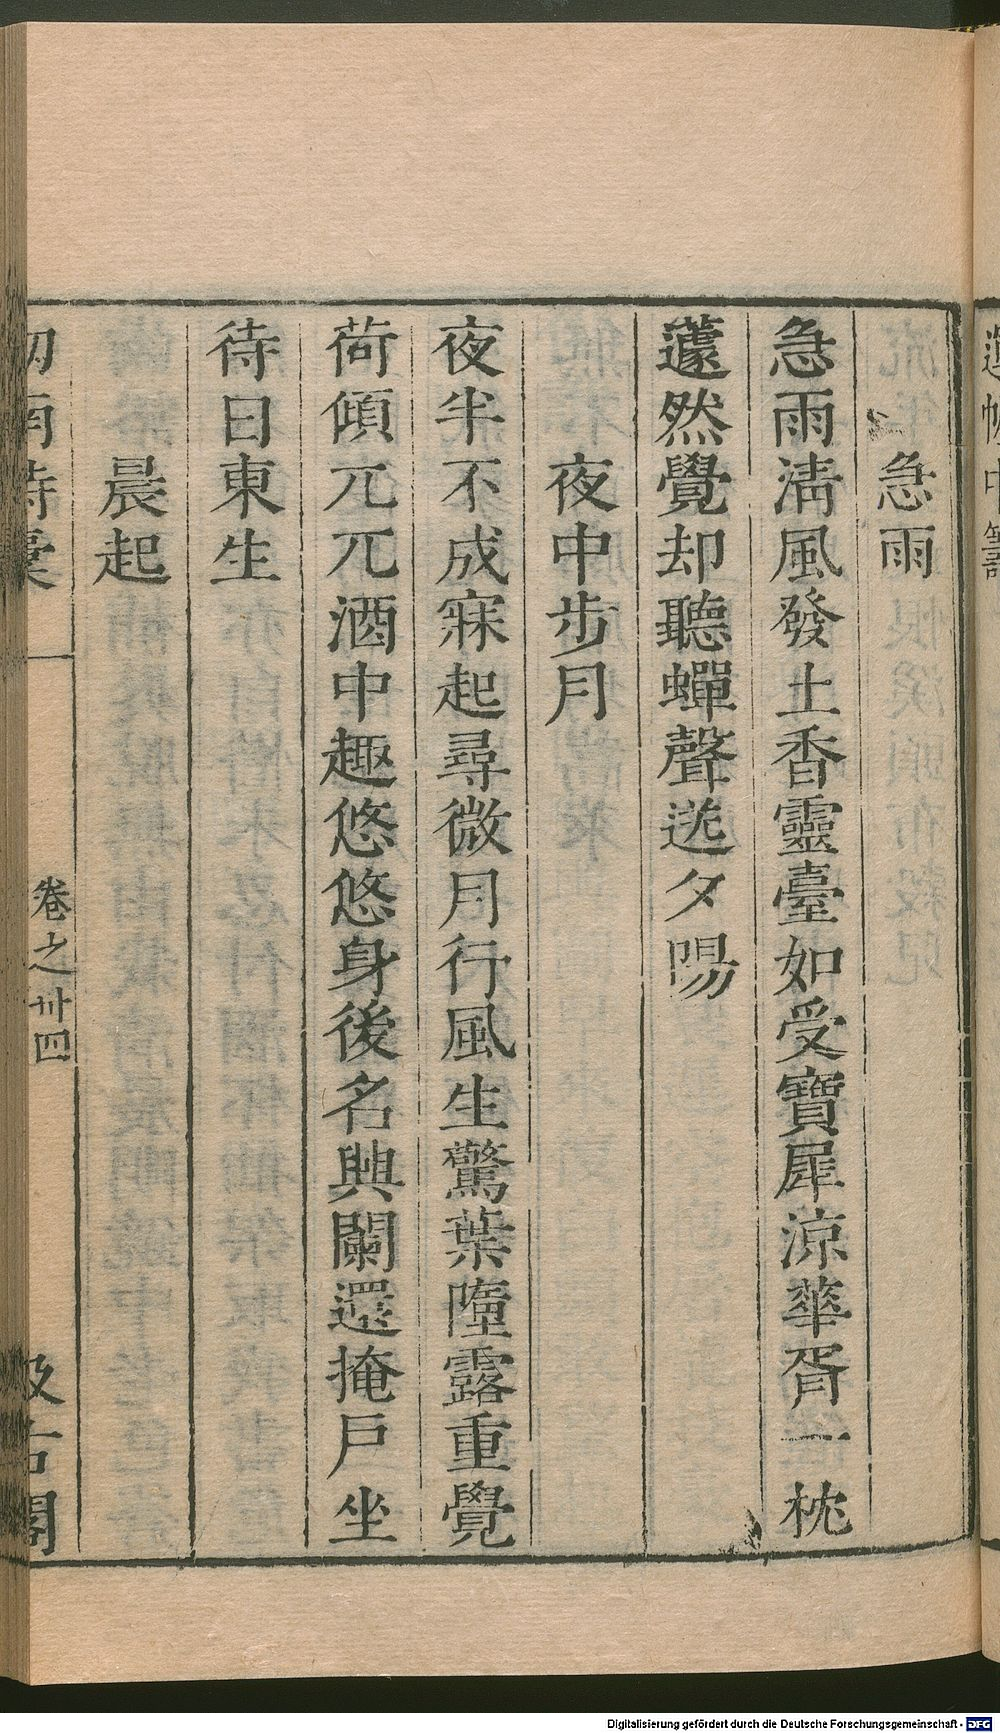 急雨
急雨淸風發土香靈臺如受寶犀涼華胥一枕
蘧然覺却聽蟬聲送夕陽
夜中步月
夜半不成寐起尋微月行風生驚葉墮露重覺
荷傾兀兀酒中趣悠悠身後名興闌還掩戶坐
待日東生
晨起
卷之卅四
汲古閣
Digitalisierung gefördert durch die Deutsche Forschungsgemeinschaft - DFG